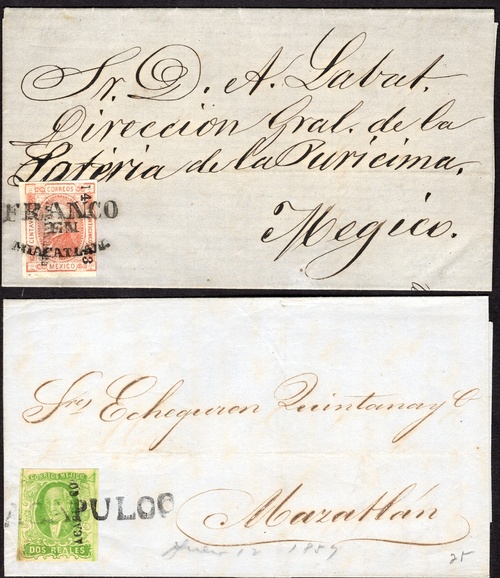 Sr. D. A. Labat.
Direccion Gral. de la
Loteria de la Puricima.
Megico.
CORREOS
MEXICO
FRANCO
EN
MIACATLAN.
Sres Echeguren Quintana y C
Mazatlán
CORREOS MEJICO
DOS REALES
ACAPULCO
PULCO
12 1859
25